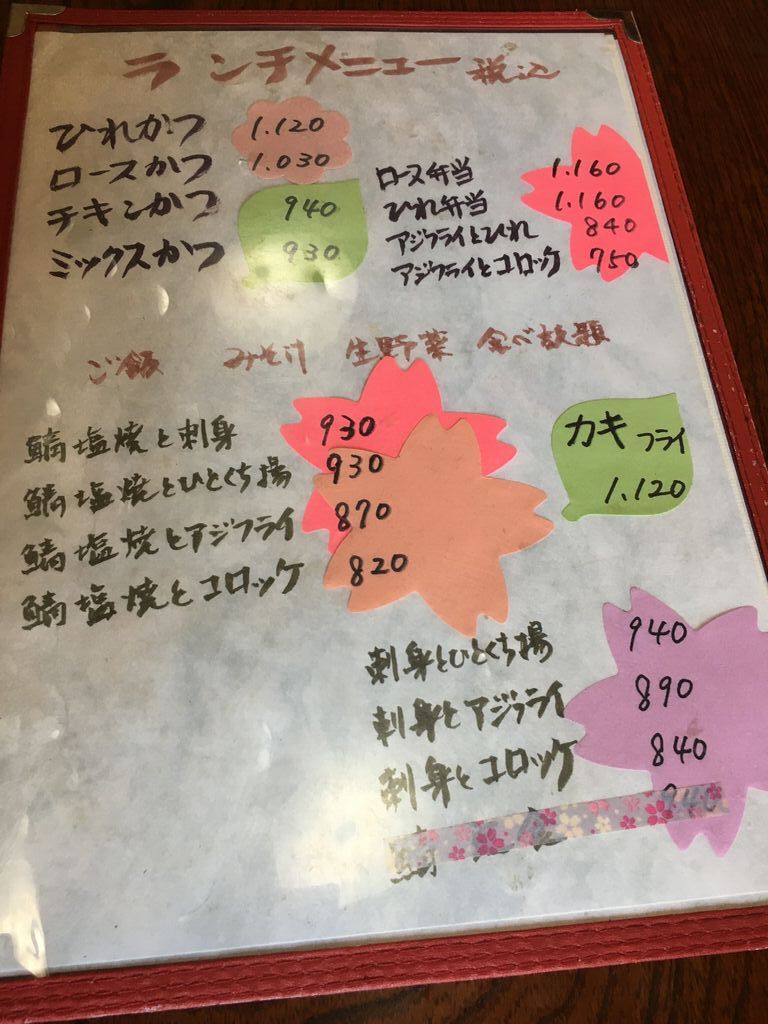 ランチメニュー 税込
ひれかつ 1.120
ロースかつ 1.030
チキンかつ 940
ミックスかつ 930
ロース弁当 1.160
ひれ弁当 1.160
アジフライとひれ 840
アジフライとコロッケ 750
ご飯 みそ汁 生野菜 食べ放題
鯖塩焼と刺身 930
鯖塩焼とひとくち揚 930
鯖塩焼とアジフライ 870
鯖塩焼とコロッケ 820
カキフライ
1.120
刺身とひとくち揚 940
刺身とアジフライ 890
刺身とコロッケ 840